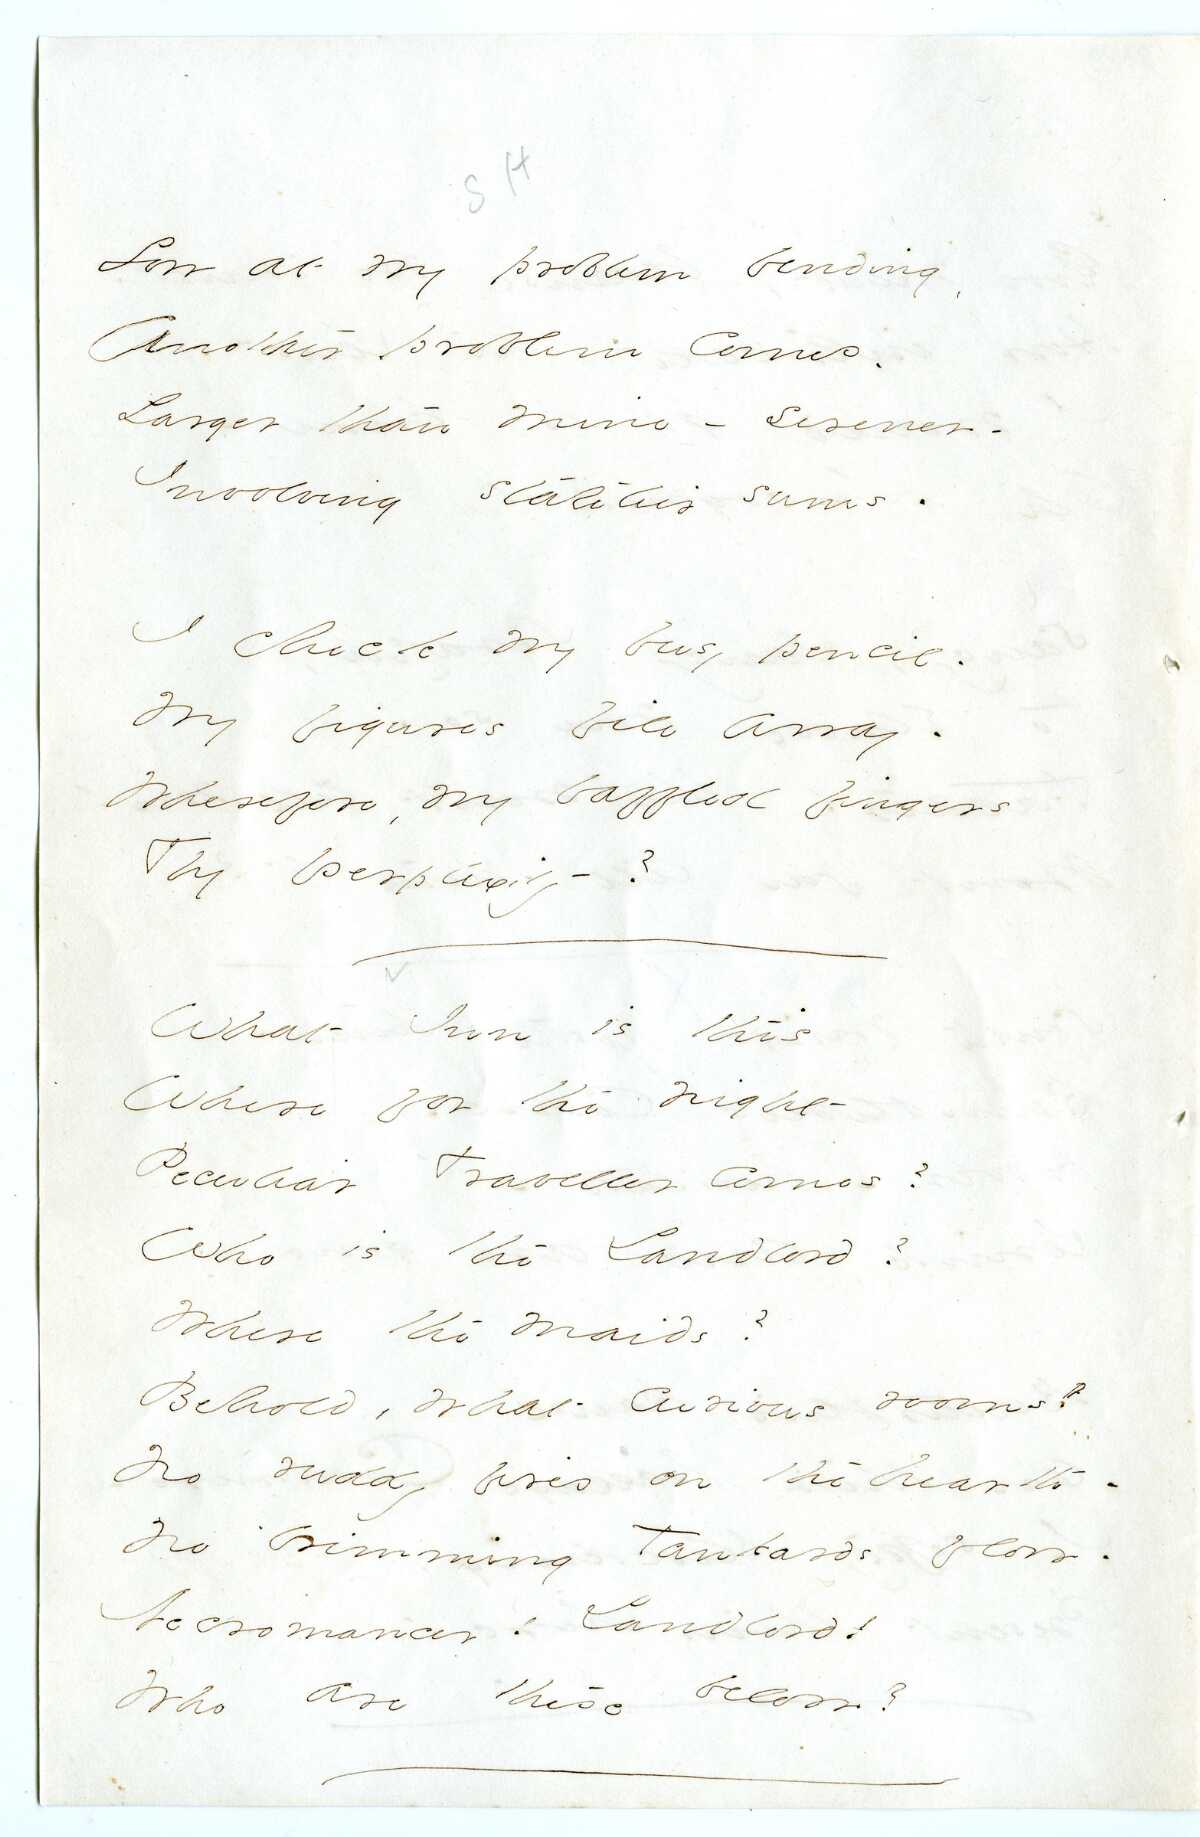 S H
Low at my problem bending,
Another problem comes.
Larger than mine - serener -
Involving statelier sums.
I check my busy pencil.
My figures file away.
Wherefore, my baffled fingers
Thy perplexity - ?
What Inn is this
Where for the night
Peculiar Traveller comes?
Who is the Landlord?
Where the maids?
Behold, what curious rooms?
No ruddy fires on the hearth -
No brimming Tankards flow.
Necromancer! Landlord!
Who are these below?